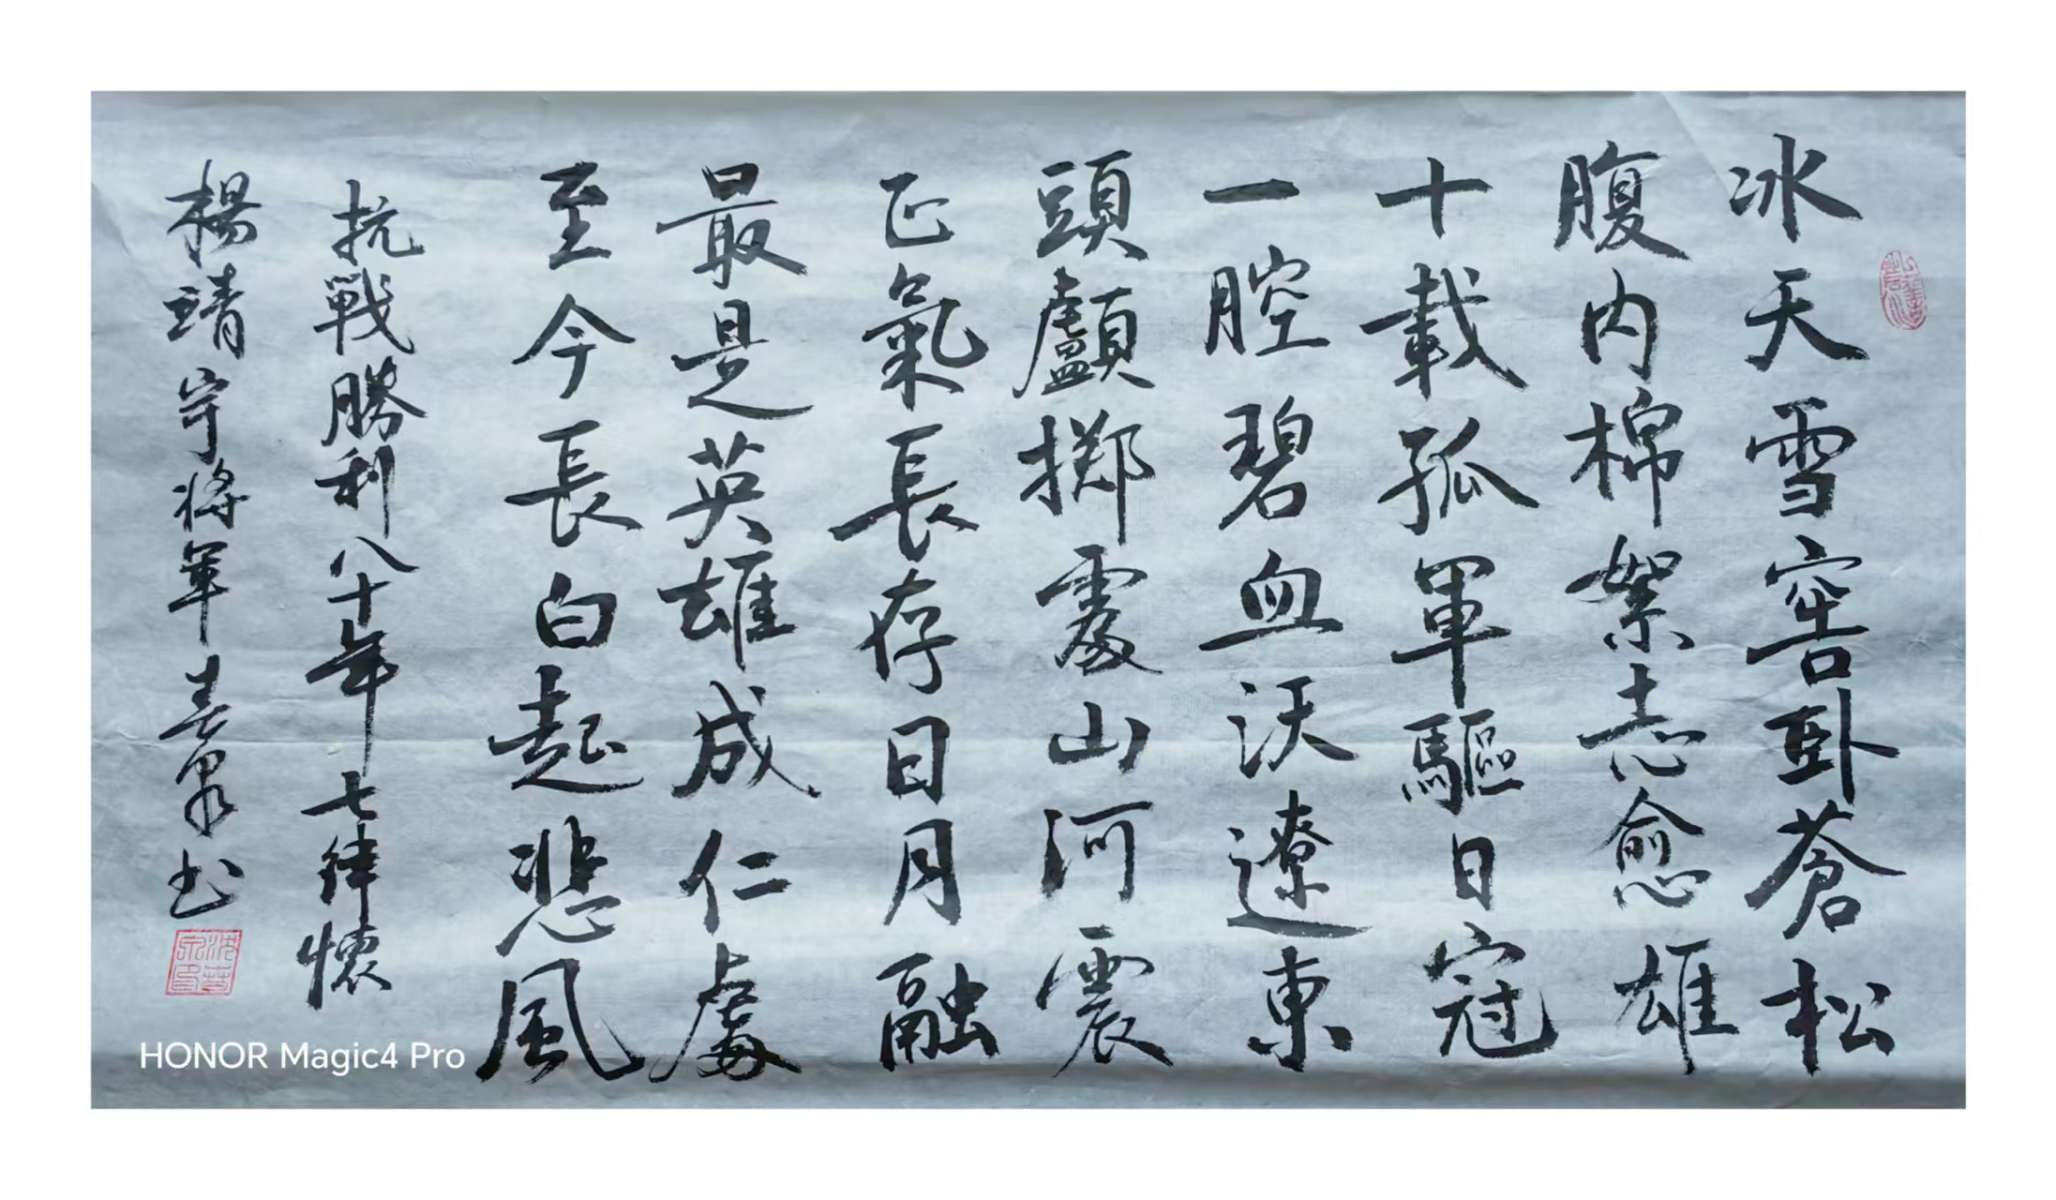 冰天雪窖卧蒼松
腹内棉絮志愈雄
十載孤軍驅日寇
一腔碧血沃遼東
頭顱掷處山河震
正氣長存日月融
最是英雄成仁處
至今長白起悲風
抗戰勝利八十年七律懷
楊靖宇将軍 春泉书
HONOR Magic4 Pro